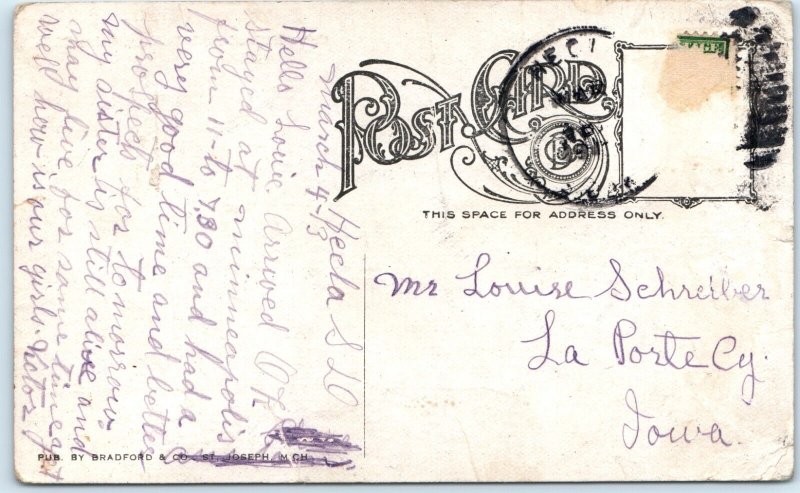 Hecla S D
March 4-13
Hello Louie Arrived O K
stayed at minneapolis
from 11- to 730 and had a
very good time and better
prospects for to morrow
my sister is still alive and
may live for some time yet
well how is our girls.
POST CARD
THIS SPACE FOR ADDRESS ONLY.
Mr Louise Schreiber
La Porte Cy.
Iowa.
PUB. BY BRADFORD & CO. ST. JOSEPH, MICH.